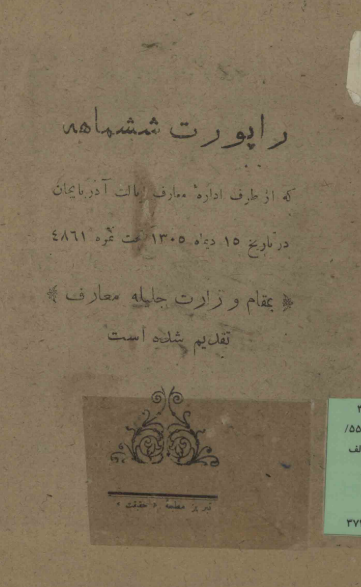 راپورت ششماهه
که از طرف ادارهٔ معارف ایالت آذربایجان
در تاریخ ۱۵ دیماه ۱۳۰۵ تحت نمره ٤٨٦١
بمقام وزارت جلیله معارف
تقدیم شده است
تبریز مطبعه « حقیقت »
/۵۵
لف
۳۷